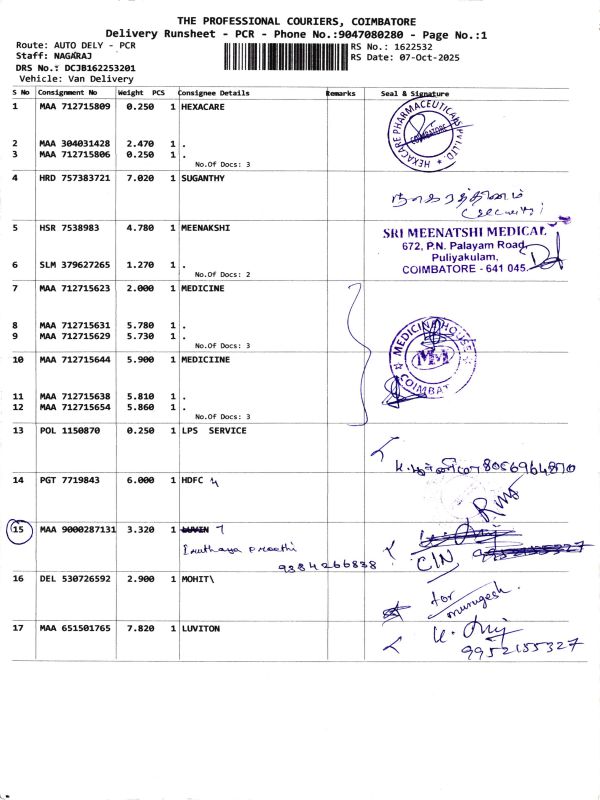 THE PROFESSIONAL COURIERS, COIMBATORE
Delivery Runsheet - PCR - Phone No.:9047080280 - Page No.:1
Route: AUTO DELY - PCR
RS No.: 1622532
Staff: NAGARAJ
RS Date: 07-Oct-2025
DRS No.: DCJB162253201
Vehicle: Van Delivery
S No Consignment No Weight PCS Consignee Details Remarks Seal & Signature
1 MAA 712715809 0.250 1 HEXACARE
HEXACARE PHARMACEUTICALS PVT.LTD.
COIMBATORE
2 MAA 304031428 2.470 1 .
3 MAA 712715806 0.250 1 .
No.Of Docs: 3
4 HRD 757383721 7.020 1 SUGANTHY
(Security)
5 HSR 7538983 4.780 1 MEENAKSHI
SRI MEENATSHI MEDICAL
672, P.N. Palayam Road,
Puliyakulam,
COIMBATORE - 641 045.
6 SLM 379627265 1.270 1 .
No.Of Docs: 2
7 MAA 712715623 2.000 1 MEDICINE
8 MAA 712715631 5.780 1 .
9 MAA 712715629 5.730 1 .
No.Of Docs: 3
MEDICINE HOUSE
MM
COIMBAT
10 MAA 712715644 5.900 1 MEDICIINE
11 MAA 712715638 5.810 1 .
12 MAA 712715654 5.860 1 .
No.Of Docs: 3
13 POL 1150870 0.250 1 LPS SERVICE
8056964870
14 PGT 7719843 6.000 1 HDFC 4
15 MAA 9000287131 3.320 1 LUVIN 7
Iruthaya preethi
9384266838
CIN
9952155327
16 DEL 530726592 2.900 1 MOHIT\
for
murugesh.
17 MAA 651501765 7.820 1 LUVITON
9952155327